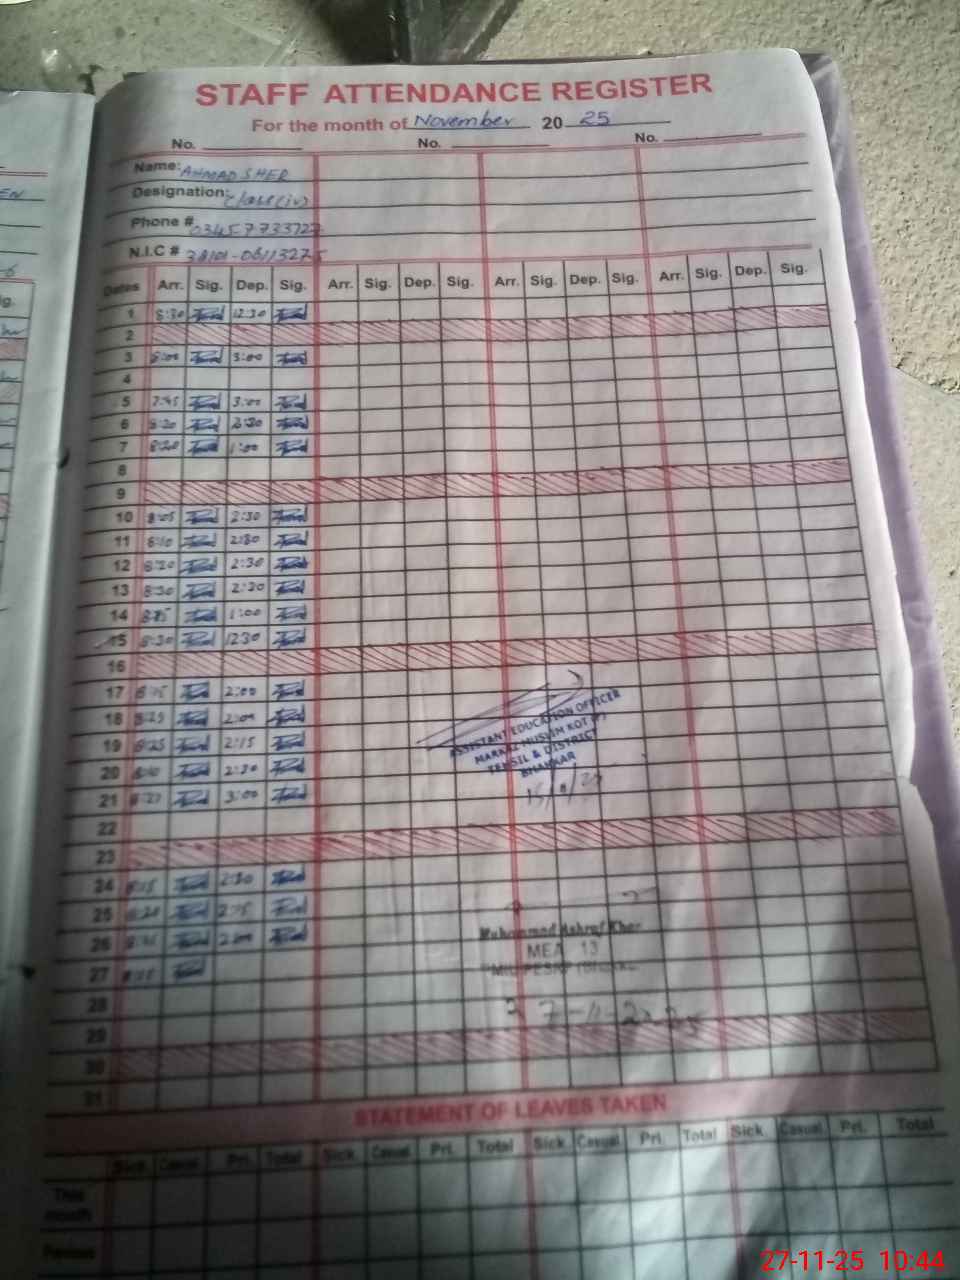 STAFF ATTENDANCE REGISTER
For the month of November 20 25
No. No. No.
Name: AHMAD SHER
Designation: Class (iv)
Phone #
N.I.C #
Dates Arr. Sig. Dep. Sig. Arr. Sig. Dep. Sig. Arr. Sig. Dep. Sig. Arr. Sig. Dep. Sig.
1 8:30 12:30
2
3 8:00 3:00
4
5 7:45 3:00
6 8:20 2:30
7 8:20 1:00
8
9
10 8:05 2:30
11 8:10 2:30
12 8:20 2:30
13 8:30 2:30
14 1:00
15 8:30 12:30
16
17 8:15 2:00
18 8:25 2:00
19 8:25 2:15
20 8:10 2:30
21 3:00
22
23
24 8:15 2:30
25 8:20 2:15
26 2:00
27 8:15
28
29
30
31
ASSISTANT EDUCATION OFFICER
MARKAZ MUSLIM KOT
TEHSIL & DISTRICT
BHAKKAR
Muhammad Ashraf
MEA 13
27-11-2025
STATEMENT OF LEAVES TAKEN
Sick Casual Pri. Total Sick Casual Pri. Total Sick Casual Pri. Total Sick Casual Pri. Total
This month
Previous
EN
27-11-25 10:44